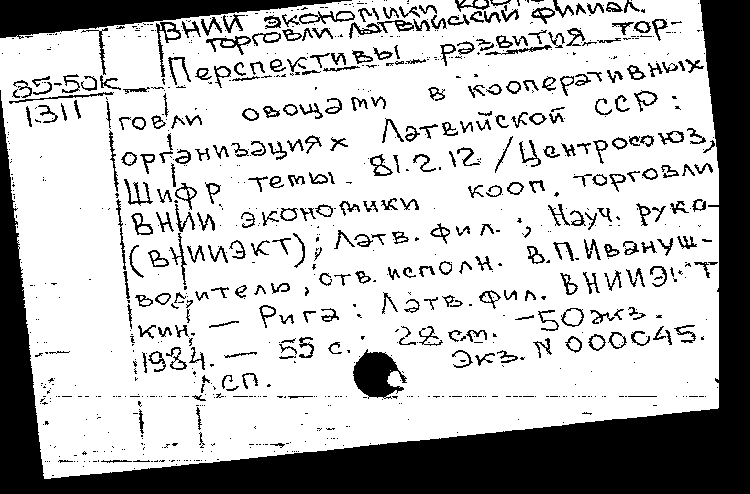 ВНИИ экономики кооп.
торговли. Латвийский филиал.
Перспективы развития тор-
85-50к
1311
говли овощами в кооперативных
организациях Латвийской ССР:
Шифр темы 81.2.12 / Центросоюз,
ВНИИ экономики кооп. торговли
(ВНИИЭКТ), Латв. фил.; Науч. руко-
водитель, отв. исполн. В.П.Ивануш-
кин. — Рига: Латв. фил. ВНИИЭКТ
1984. — 55 с.; 28 см. — 50 экз.
ДСП. Экз. N 000045.